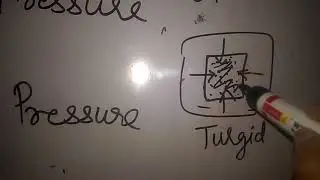 Pressure
Pressure
Turgid